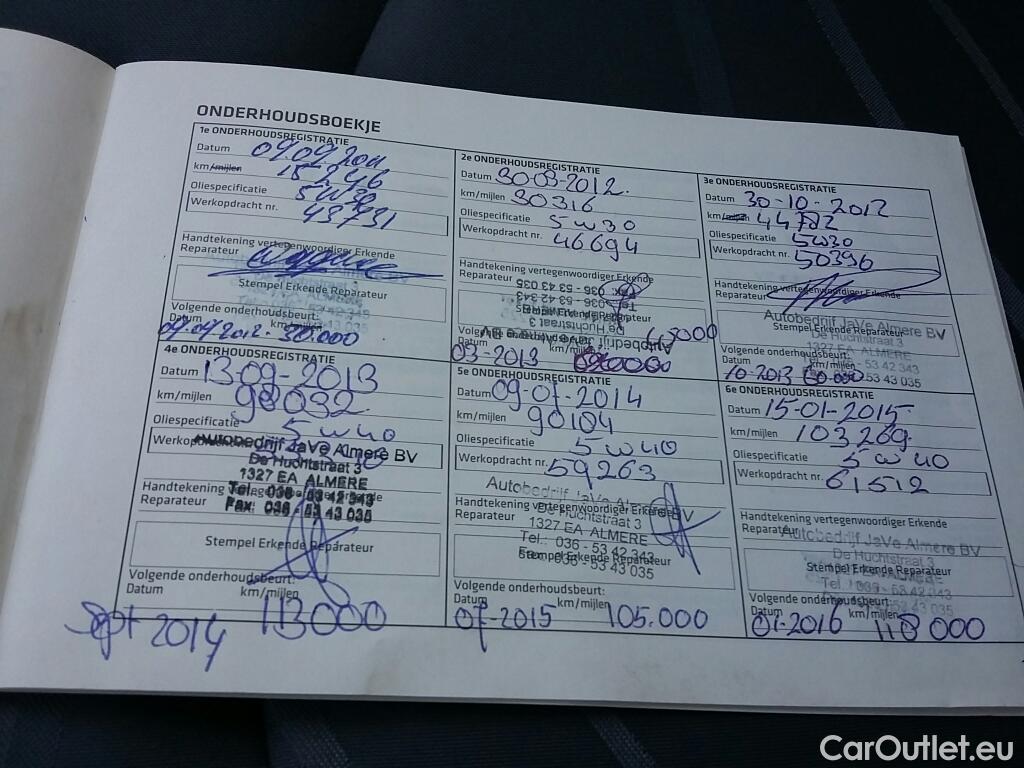 ONDERHOUDSBOEKJE
1e ONDERHOUDSREGISTRATIE
Datum 09.09.2011
km/mijlen 15246
Oliespecificatie 5W30
Werkopdracht nr. 43731
Handtekening vertegenwoordiger Erkende
Reparateur
Stempel Erkende Reparateur
Volgende onderhoudsbeurt:
Datum km/mijlen
09.09.2012. 30.000
2e ONDERHOUDSREGISTRATIE
Datum 30-03-2012.
km/mijlen 30316
Oliespecificatie 5W30
Werkopdracht nr. 46694
Handtekening vertegenwoordiger Erkende
Reparateur
Autobedrijf JaVe Almere BV
De Huchtstraat 3
036 - 53 42 343
036 - 53 43 035
45000
03-2013
3e ONDERHOUDSREGISTRATIE
Datum 30-10-2012
km/mijlen
Oliespecificatie 5W30
Werkopdracht nr. 50396
Handtekening vertegenwoordiger Erkende
Reparateur
Autobedrijf JaVe Almere BV
Stempel Erkende Reparateur
De Huchtstraat 3
1327 EA ALMERE
- 53 42 343
Volgende onderhoudsbeurt:
Datum km/mijlen - 53 43 035
10-2013 60.000
4e ONDERHOUDSREGISTRATIE
Datum 13-09-2013
km/mijlen
Oliespecificatie 5W40
Autobedrijf JaVe Almere BV
De Huchtstraat 3
1327 EA ALMERE
Tel.: 036 - 53 42 343
Fax: 036 - 53 43 035
Handtekening
Reparateur
Stempel Erkende Reparateur
Volgende onderhoudsbeurt:
Datum km/mijlen
sept 2014 113000
5e ONDERHOUDSREGISTRATIE
Datum 09-07-2014
km/mijlen 90104
Oliespecificatie 5W40
Werkopdracht nr. 59263
Autobedrijf JaVe Almere BV
Handtekening vertegenwoordiger Erkende
Reparateur
De Huchtstraat 3
1327 EA ALMERE
Tel.: 036 - 53 42 343
Stempel Erkende Reparateur
036 - 53 43 035
Volgende onderhoudsbeurt:
Datum km/mijlen
07-2015 105.000
6e ONDERHOUDSREGISTRATIE
Datum 15-01-2015
km/mijlen 103269
Oliespecificatie 5W40
Werkopdracht nr. 61512
Handtekening vertegenwoordiger Erkende
Reparateur
Autobedrijf JaVe Almere BV
De Huchtstraat 3
Stempel Erkende Reparateur
Tel.: 036 - 53 42 343
53 43 035
Volgende onderhoudsbeurt:
Datum km/mijlen
01-2016 118000
CarOutlet.eu